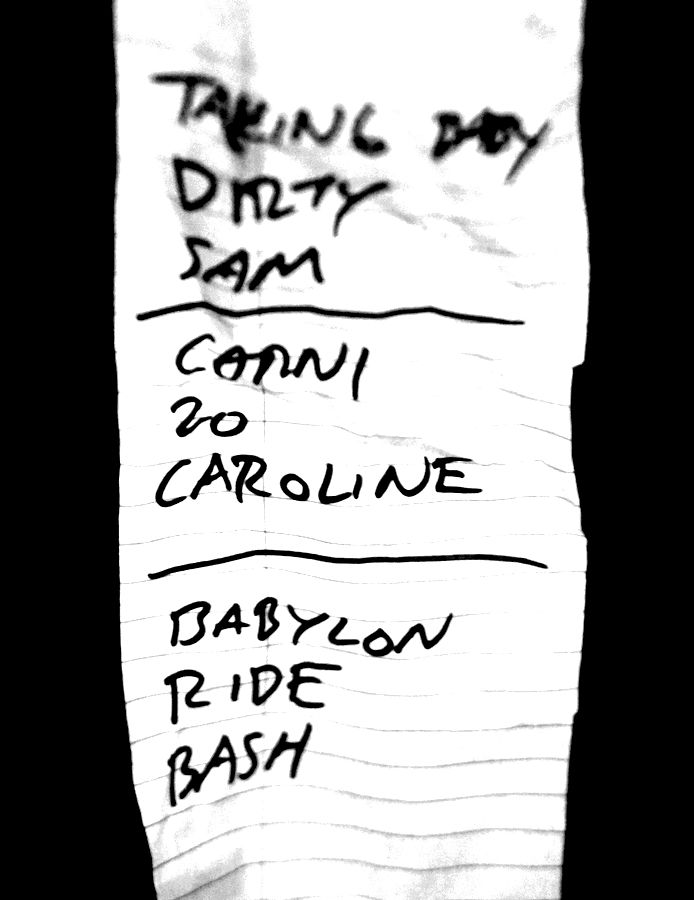 TAKING BABY
DIRTY
SAM
CARNI
20
CAROLINE
BABYLON
RIDE
BASH